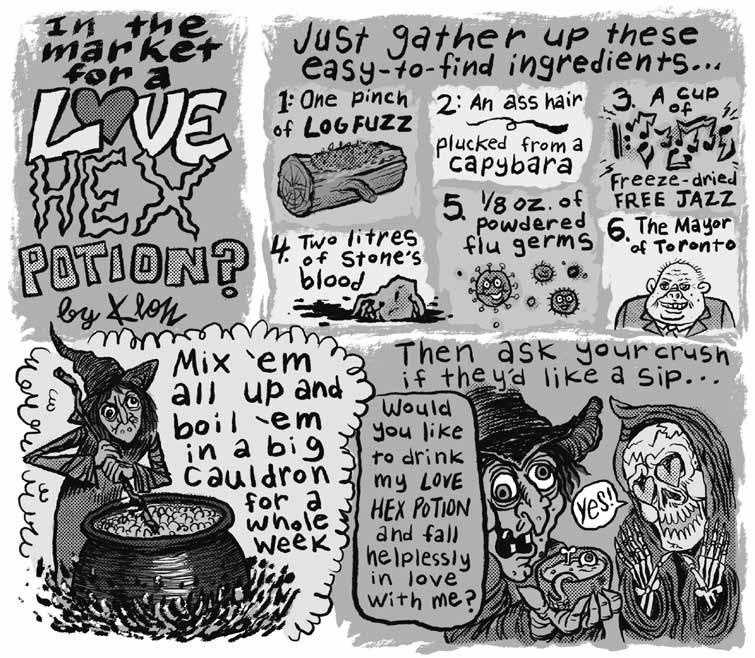 In the
market
for a
LOVE
HEX
POTION?
by
Just gather up these
easy-to-find ingredients...
1: One pinch
of LOGFUZZ
2: An ass hair
plucked from a
capybara
3. A cup
of
Freeze-dried
FREE JAZZ
4. Two litres
of Stone's
blood
5. 1/8 oz. of
powdered
flu germs
6. The Mayor
of Toronto
Mix 'em
all up and
boil 'em
in a big
cauldron
for a
whole
week
Then ask your crush
if they'd like a sip...
Would
you like
to drink
my LOVE
HEX POTION
and fall
helplessly
in love
with me?
Yes!